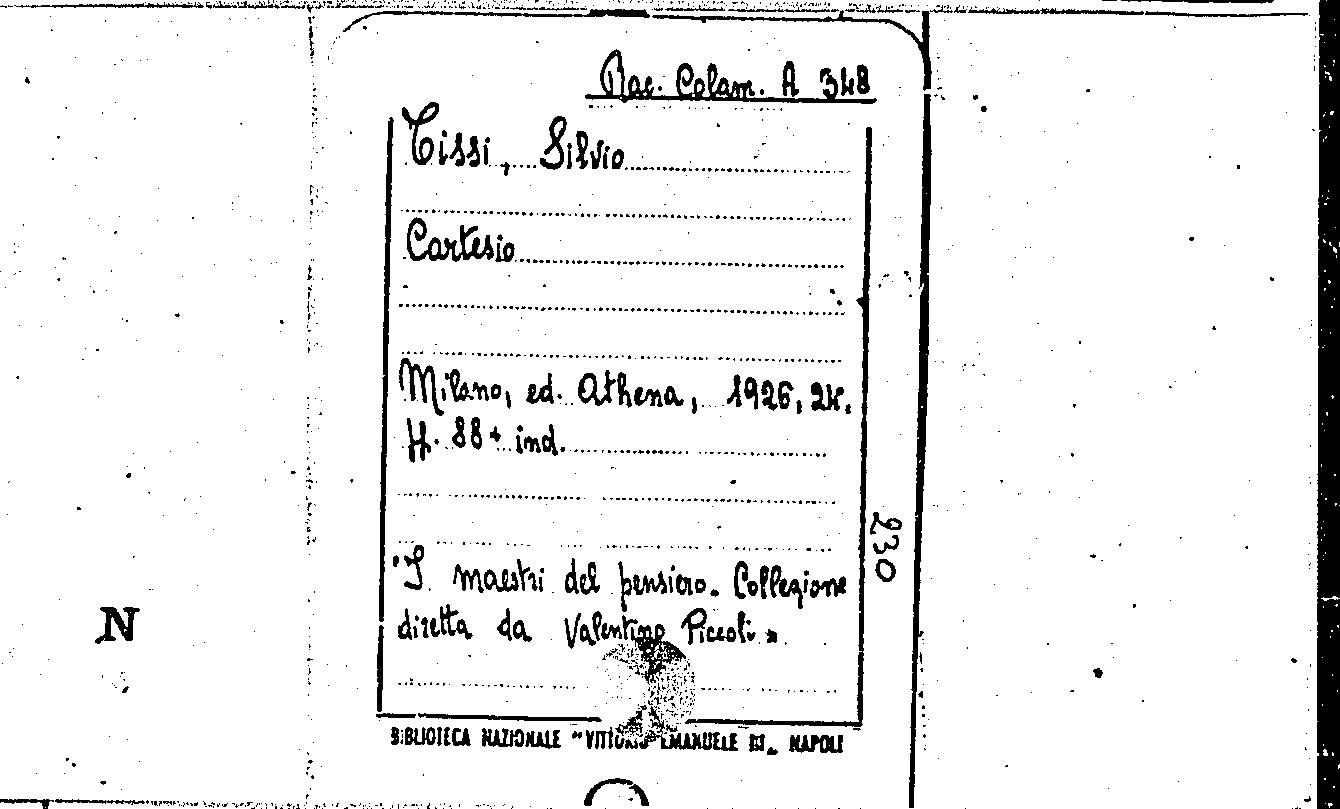 Rac. Colam. A 348
Tissi, Silvio
Cartesio
Milano, ed. Athena, 1926, 24.
pp. 88 + ind.
230
"I maestri del pensiero. Collezione
diretta da Valentino Piccoli"
N
BIBLIOTECA NAZIONALE "VITTORIO EMANUELE III" NAPOLI